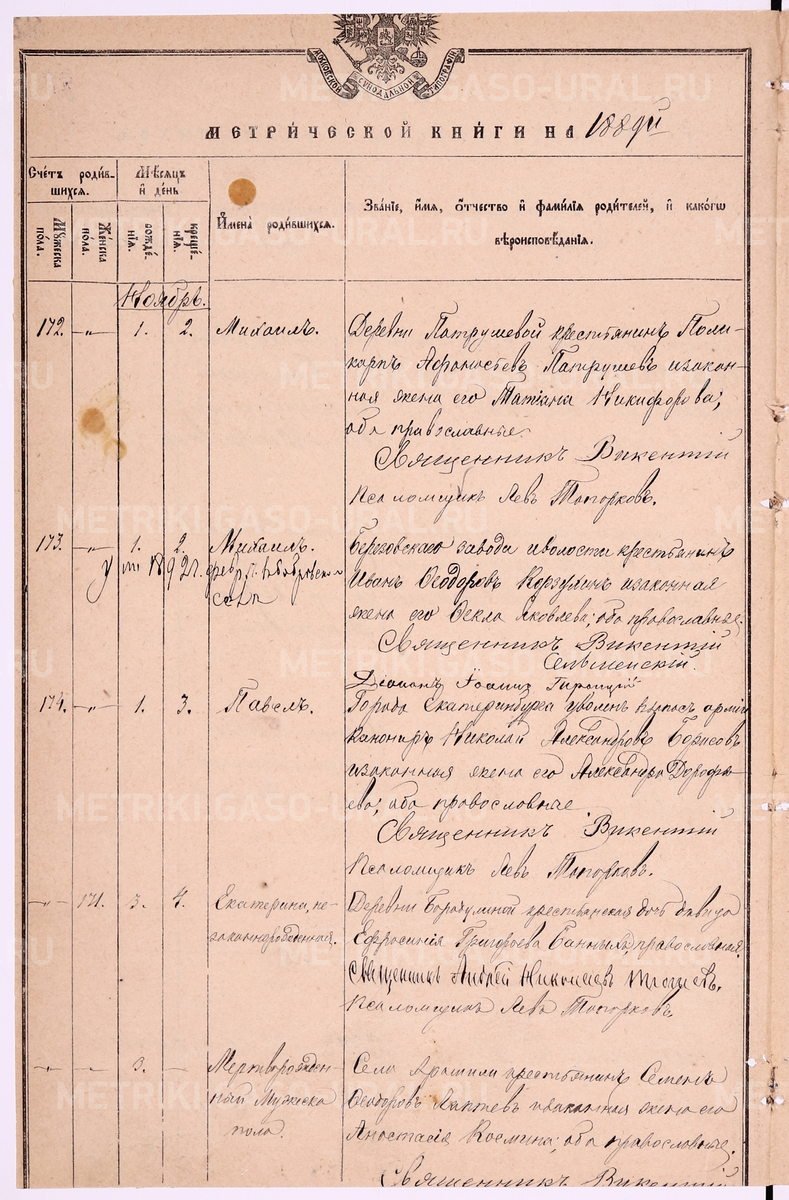 МОСКОВСКОЙ СѴНОДАЛЬНОЙ ТИПОГРАФІИ
МЕТРИ́ЧЕСКОЙ КНИ́ГИ НА 1889й
Сче́тъ роди́в-
шихся.
Мѣсяцъ
и день
Имена̀ роди́вшихся.
Зва́ніе, и́мя, о́тчество и фами́лія роди́телей, и како́гѡ
вѣроисповѣ́данія.
Мꙋ́жеска по́ла.
Же́нска по́ла.
рожде́-нія.
креще́-нія.
Ноябрь.
172. -„- 1. 2. Михаилъ. Деревни Патрушевой крестьянинъ Поли-
карпъ Афонасьевъ Патрушевъ и закон-
ная жена его Татіана Никифорова;
оба православные.
Священникъ Викентій
Псаломщикъ Левъ Топорковъ.
173. -„- 1. 2. Михаилъ. Березовскаго завода и волости крестьянинъ
1892г.
Иванъ Ѳеодоровъ Корзухинъ и законная
жена его Ѳекла Яковлева; оба православные.
Священникъ Викентій
Сельменскій.
Діаконъ Іоаннъ
174. -„- 1. 3. Павелъ. Города Екатеринбурга уволен. въ запасъ арміи
канониръ Николай Александровъ Борисовъ
и законная жена его Александра Дорофе-
ева; оба православные
Священникъ Викентій
Псаломщикъ Левъ Топорковъ.
-„- 171. 3. 4. Екатерина, не-
законнорожденная.
Деревни крестьянская дочь дѣвица
Ефросинія Григорьева Банныхъ, православная.
Священникъ Андрей Николаевъ
Псаломщикъ Левъ Топорковъ
-„- -„- 3. - Мертворожден-
ный Мужеска
пола.
Села Арамили крестьянинъ Семенъ
Ѳеодоровъ Лаптевъ и законная жена его
Анастасія Космина; оба православные.
Священникъ Викентій
METRIKI.GASO-URAL.RU